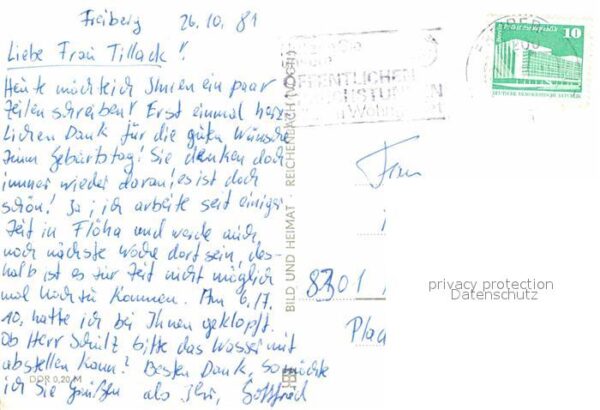 Freiberg 26.10.81
Liebe Frau Tillack!
Heute möchte ich Ihnen ein paar
Zeilen schreiben! Erst einmal herz
lichen Dank für die guten Wünsche
zum Geburtstag! Sie denken doch
immer wieder daran; es ist doch
schön! Ja, ich arbeite seit einiger
Zeit in Flöha und werde auch
noch nächste Woche dort sein, des-
halb ist es zur Zeit nicht möglich
mal zu kommen. Am 6./7.
10. hatte ich bei Ihnen geklopft.
Ob Herr Schulz bitte das Wasser mit
abstellen kann? Besten Dank, so möchte
ich Sie grüßen als Ihr, Gottfried
DDR 0,20 M
BILD UND HEIMAT · REICHENBACH (VOGTL)
ÖFFENTLICHEN
10
DEUTSCHE DEMOKRATISCHE REPUBLIK
Frau
8301
Plau
privacy protection
Datenschutz